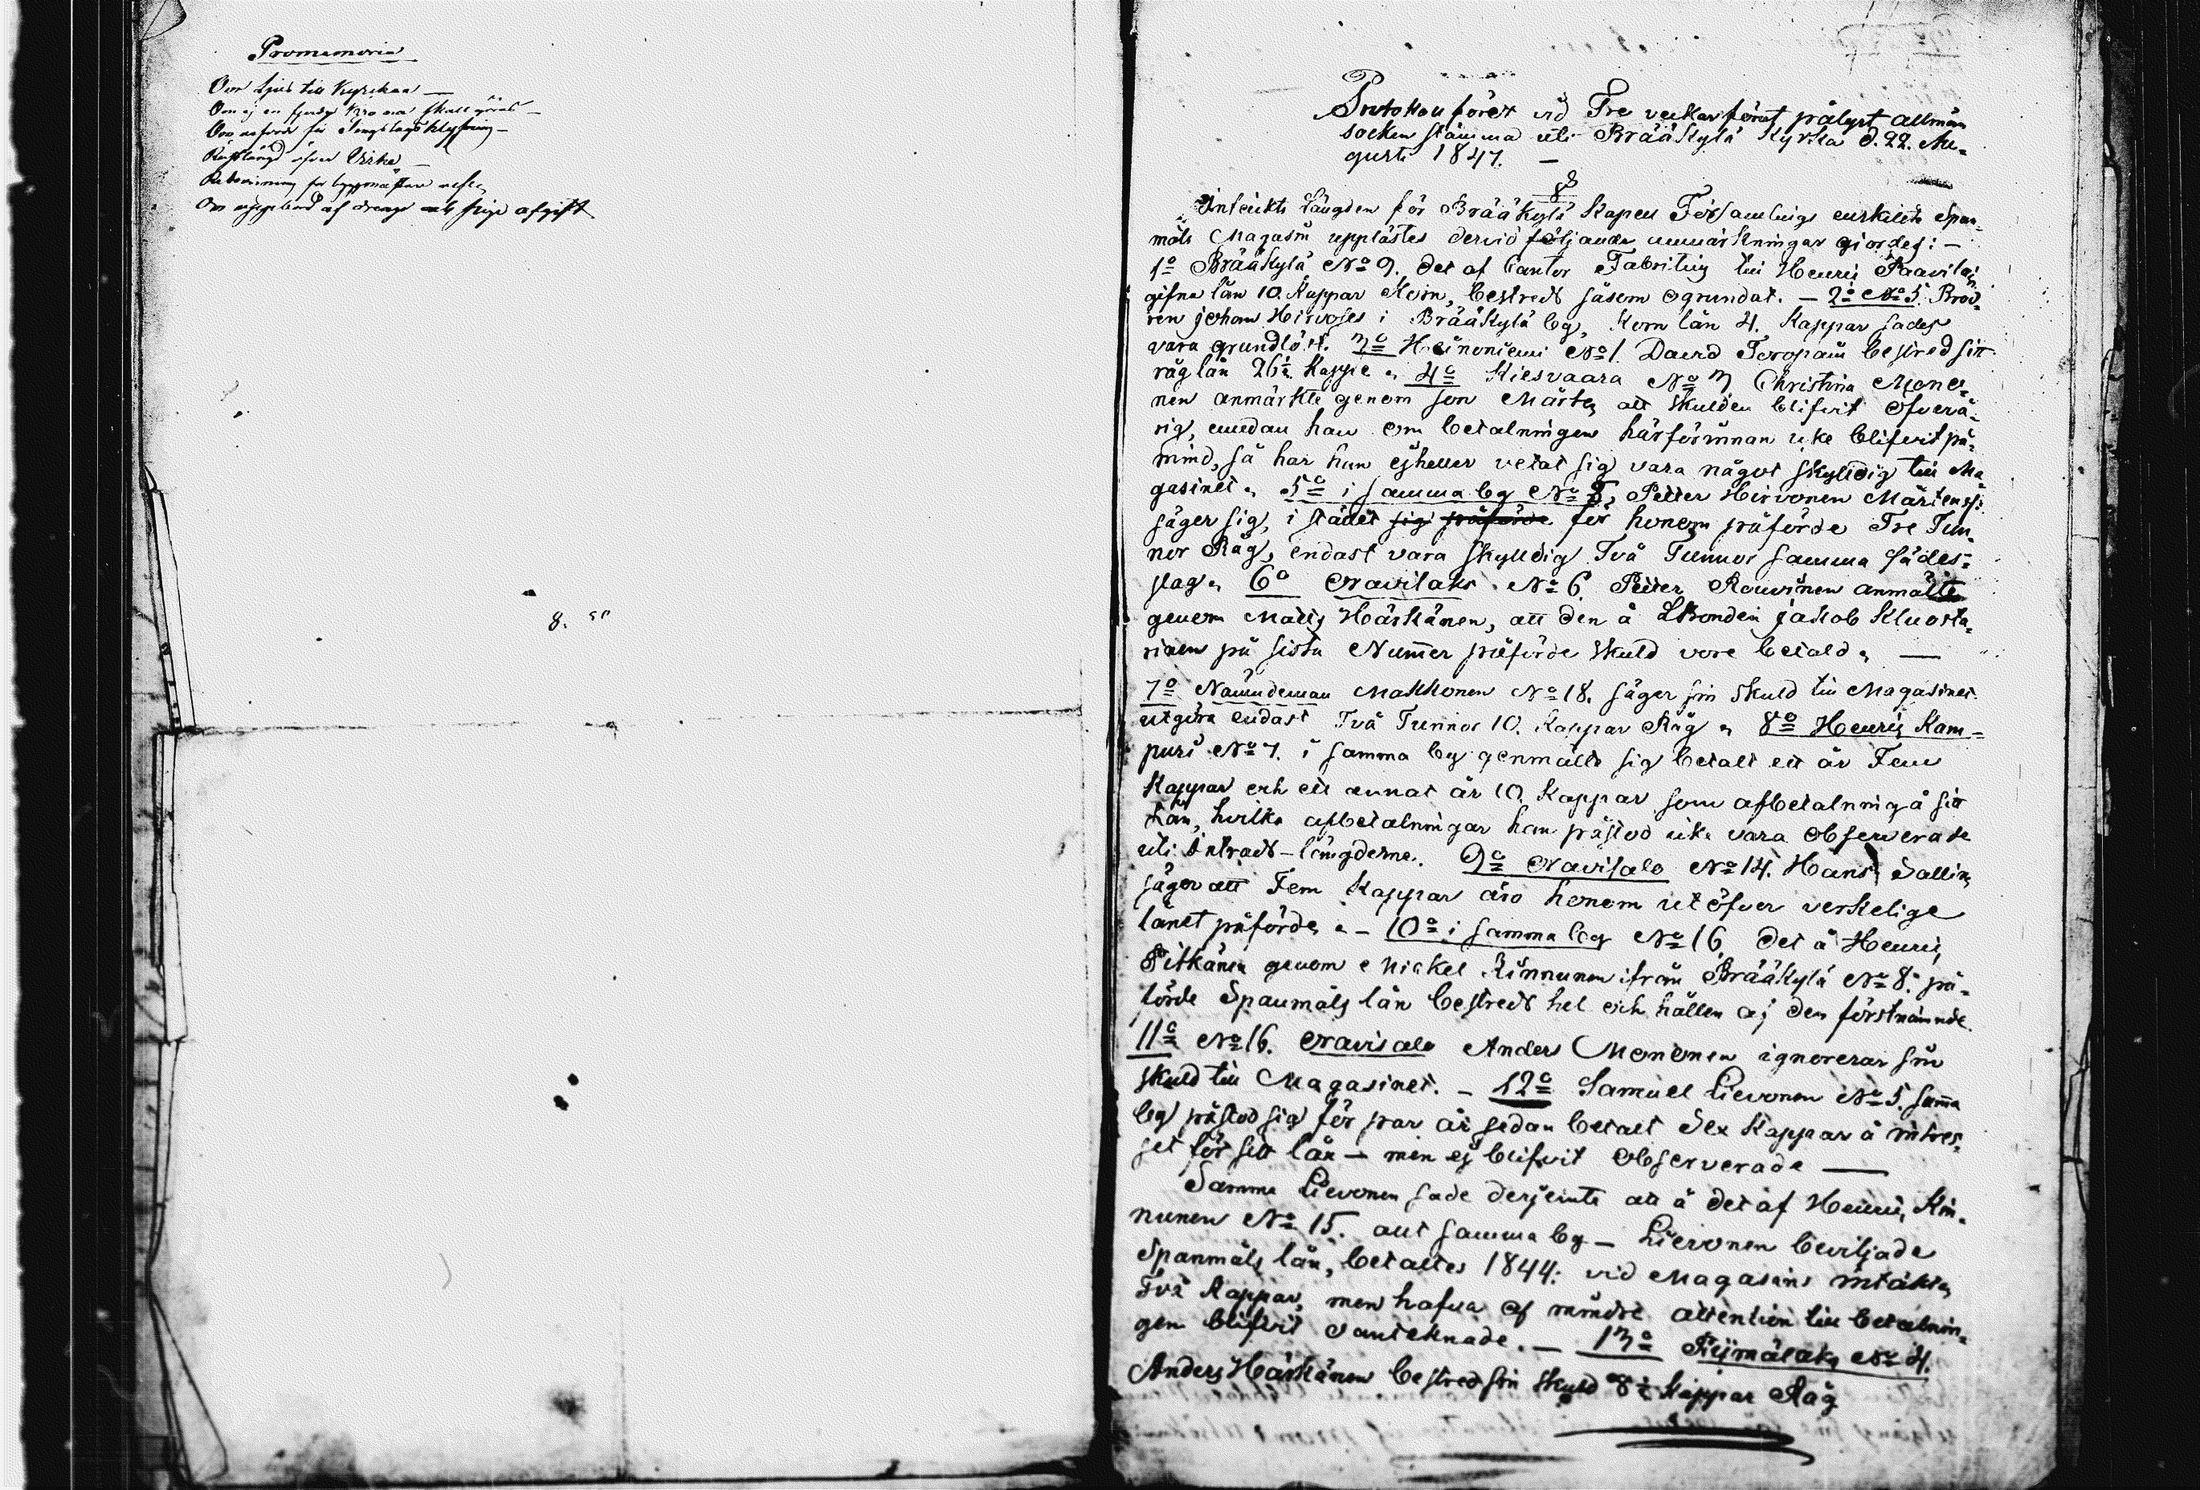 Promemoria
Om ljus till Kyrckan —
Om ej en ny skall göras —
Om för Tingslags klyfning —
öfver Virke —
Redovisning for byggmästare
Om uppbörd af
8.
Protokoll fördt vid Tre veckor förut pålyst allmän
socken stämma uti Brääkylä Kyrka d. 22. Au-
gusti 1847. —
§
Intückts längden för Brääkylä Kapell Församlings enskilda Span-
måls Magasin upplästes dervid följande anmärkningar giordes: —
1º Brääkylä Nº 9. det af Cantor Fabritius till Henric Paavilain
gifna lån 10. Kappar Korn, bestreds såsom ogrundat. — 2º Nº 5. Brod-
ren Johan Hirvoses i Brääkylä by, Korn lån 4. Kappar sades
vara grundlöst. 3º Heinoniemi Nº 1. David Toropain bestred sitt
råg lån 26½ Kappe. 4º Kiesvaara Nº 3 Christina Mono-
nen anmärkte genom son Mårten att skulden blifvit ofverå-
rig, emedan han om betalningen härförinnan icke blifvit på-
mind, så har hun ejheller vetat sig vara något skylldig till Ma-
gasinet. 5º i samma by Nº 8, Petter Hirvonen Mårtenss:
säger sig, i stället sig påförde för honom påförde Tre Tun-
nor Råg, endast vara skylldig Två Tunnor samma sädes-
slag. 6º Oravilaks Nº 6. Petter Rouvinen anmälte
genom Matts Härkänen, att den å Bonden Jakob Kluosta-
rinen på sista Nummer påförde skuld vore betald. —
7º Nämndeman Makkonen Nº 18. säger sin skuld till Magasinet
utgöra endast Två Tunnor 10. Kappar Råg. 8º Henric Kam-
puri Nº 7. i samma by genmälte sig betalt ett år Fem
Kappar och ett annat år 10. Kappar som afbetalning å sitt
Lån, hvilka afbetalningar han påstod icke vara observerade
uti Intrads-längderne. 9º Oravisalo Nº 14. Hans Sallin
säger att Fem Kappar äro honom utöfver verkelige
lånet påförde. — 10º i samma by Nº 16. det å Henric
Pitkänen genom Mickel Kinnunen ifrån Brääkylä Nº 8. på-
förde Spanmåls lån bestreds hel och hållen af den förstnämnde.
11º Nº 16. Oravisalo Anders Mononen ignorerar sin
skuld till Magasinet. — 12º Samuel Lievonen Nº 5. samma
by påstod sig för par år sedan betalt Sex Kappar å intres-
set för sitt lån — men ej blifvit observerade —
Samme Lievonen sade derjemte att å det af Henric Kin-
nunen Nº 15. ant samma by — Lievonen beviljade
Spanmåls lån, betaltes 1844. vid Magasins intäkten
Två Kappar, men hafva af mindre attention till betalnin-
gen blifvit oanteknade. — 13º Piimälaks Nº 4.
Anders Härkänen bestred sin skuld 8½ Kappar Råg